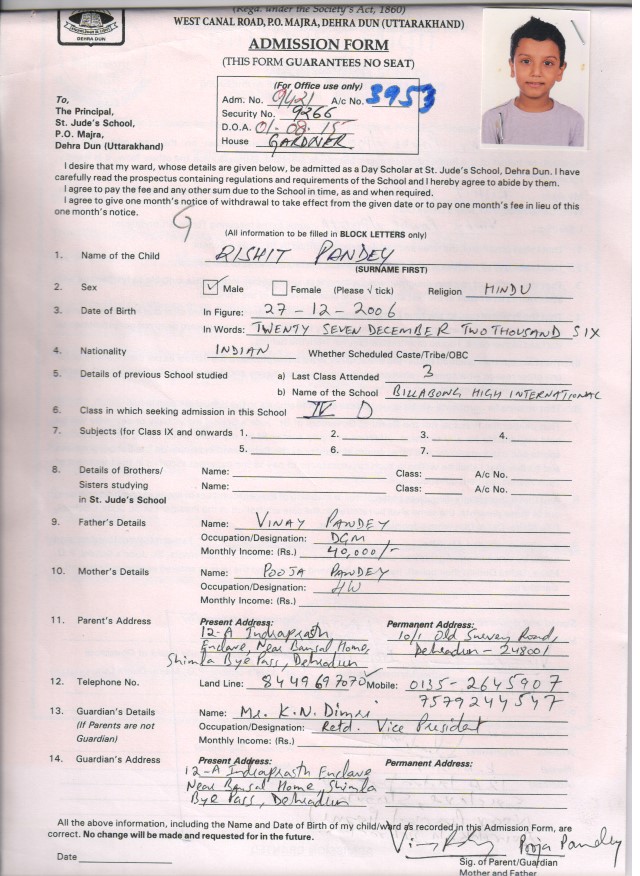 (Regd. under the Society's Act, 1860)
WEST CANAL ROAD, P.O. MAJRA, DEHRA DUN (UTTARAKHAND)
DEHRA DUN
ADMISSION FORM
(THIS FORM GUARANTEES NO SEAT)
(For Office use only)
Adm. No. 9421 A/c No. 3953
Security No. 9266
D.O.A. 01-08-15
House GARDNER
To,
The Principal,
St. Jude's School,
P.O. Majra,
Dehra Dun (Uttarakhand)
I desire that my ward, whose details are given below, be admitted as a Day Scholar at St. Jude's School, Dehra Dun. I have
carefully read the prospectus containing regulations and requirements of the School and I hereby agree to abide by them.
I agree to pay the fee and any other sum due to the School in time, as and when required.
I agree to give one month's notice of withdrawal to take effect from the given date or to pay one month's fee in lieu of this
one month's notice.
G
(All information to be filled in BLOCK LETTERS only)
1. Name of the Child RISHIT PANDEY
(SURNAME FIRST)
2. Sex ✓ Male Female (Please √ tick) Religion HINDU
3. Date of Birth In Figure: 27-12-2006
In Words: TWENTY SEVEN DECEMBER TWO THOUSAND SIX
4. Nationality INDIAN Whether Scheduled Caste/Tribe/OBC
5. Details of previous School studied a) Last Class Attended 3
b) Name of the School BILLABONG HIGH INTERNATIONAL
6. Class in which seeking admission in this School IV D
7. Subjects (for Class IX and onwards 1. 2. 3. 4.
5. 6. 7.
8. Details of Brothers/ Name: Class: A/c No.
Sisters studying Name: Class: A/c No.
in St. Jude's School
9. Father's Details Name: VINAY PANDEY
Occupation/Designation: DGM
Monthly Income: (Rs.) 40,000/-
10. Mother's Details Name: POOJA PANDEY
Occupation/Designation: HW
Monthly Income: (Rs.)
11. Parent's Address Present Address: Permanent Address:
12-A Indraprasth 10/1 Old Survey Road,
Enclave, Near Bansal Home, Dehradun - 248001
Shimla Bye Pass, Dehradun
12. Telephone No. Land Line: 8449697070 Mobile: 0135-2645907
7579244547
13. Guardian's Details Name: Mr. K.N. Dimri
(If Parents are not Occupation/Designation: Retd. Vice President
Guardian) Monthly Income: (Rs.)
14. Guardian's Address Present Address: Permanent Address:
12-A Indraprasth Enclave
Near Bansal Home, Shimla
Bye Pass, Dehradun
All the above information, including the Name and Date of Birth of my child/ward as recorded in this Admission Form, are
correct. No change will be made and requested for in the future.
Pooja Pandey
Date Sig. of Parent/Guardian
Mother and Father